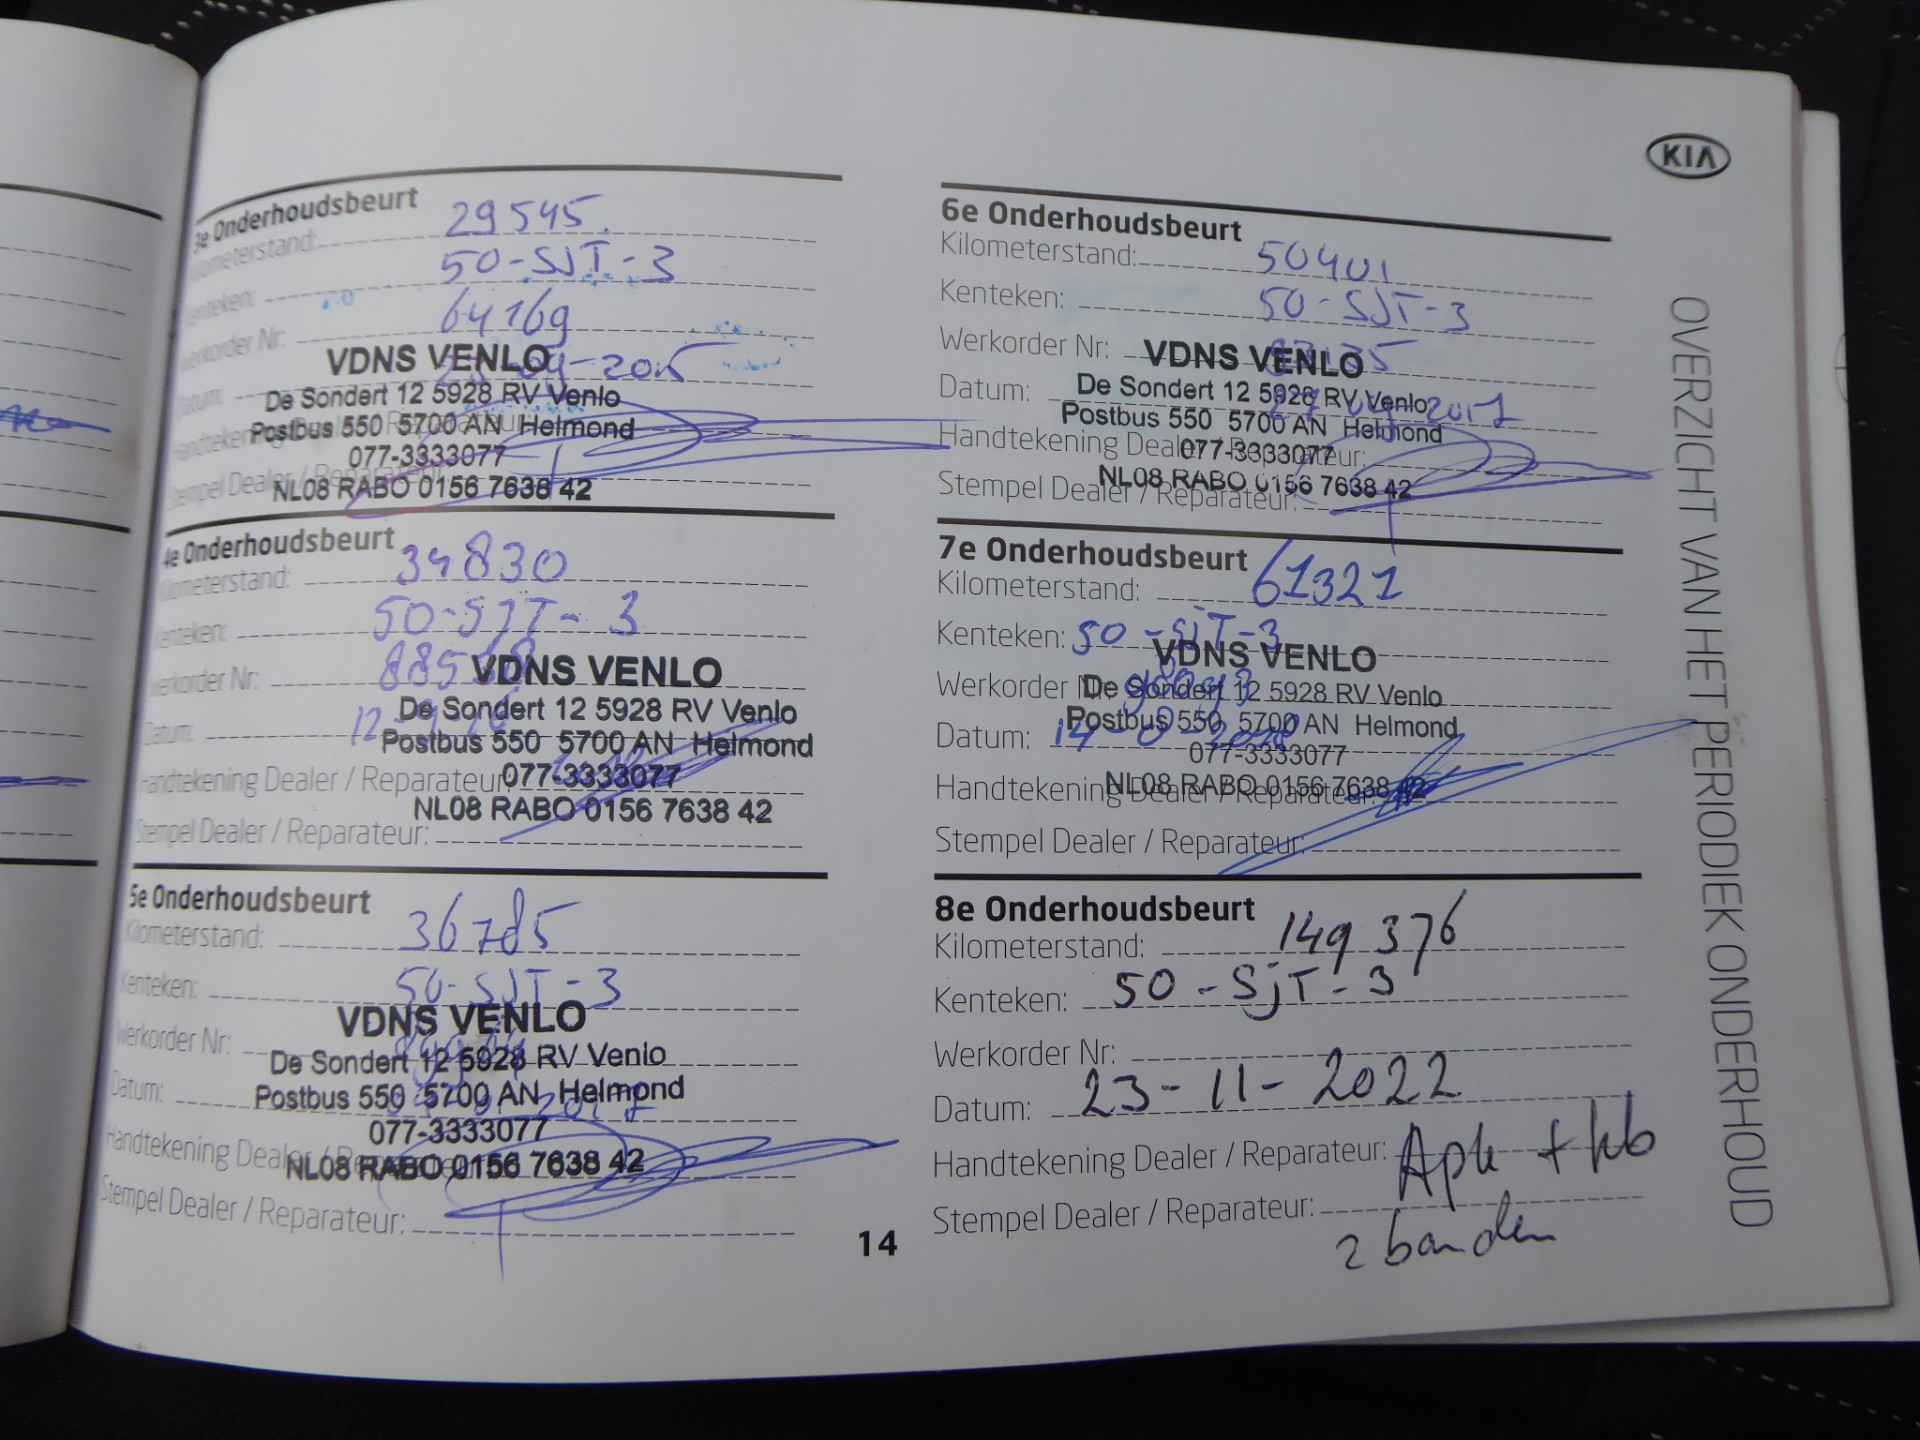 KIA
OVERZICHT VAN HET PERIODIEK ONDERHOUD
3e Onderhoudsbeurt
Kilometerstand: 29545
Kenteken: 50-SJT-3
Werkorder Nr: 64169
Datum: 09-2015
VDNS VENLO
De Sondert 12 5928 RV Venlo
Postbus 550 5700 AN Helmond
077-3333077
NL08 RABO 0156 7638 42
Handtekening
Stempel Dealer / Reparateur:
4e Onderhoudsbeurt
Kilometerstand: 34830
Kenteken: 50-SJT-3
Werkorder Nr:
Datum:
VDNS VENLO
De Sondert 12 5928 RV Venlo
Postbus 550 5700 AN Helmond
077-3333077
NL08 RABO 0156 7638 42
Handtekening Dealer / Reparateur:
Stempel Dealer / Reparateur:
5e Onderhoudsbeurt
Kilometerstand: 36785
Kenteken: 50-SJT-3
Werkorder Nr:
Datum: 2017
VDNS VENLO
De Sondert 12 5928 RV Venlo
Postbus 550 5700 AN Helmond
077-3333077
NL08 RABO 0156 7638 42
Handtekening Dealer / Reparateur:
Stempel Dealer / Reparateur:
6e Onderhoudsbeurt
Kilometerstand: 50401
Kenteken: 50-SJT-3
Werkorder Nr:
Datum: 2017
VDNS VENLO
De Sondert 12 5928 RV Venlo
Postbus 550 5700 AN Helmond
077-3333077
NL08 RABO 0156 7638 42
Handtekening Dealer / Reparateur:
Stempel Dealer / Reparateur:
7e Onderhoudsbeurt
Kilometerstand: 61321
Kenteken: 50-SJT-3
Werkorder
Datum: 14-
VDNS VENLO
De Sondert 12 5928 RV Venlo
Postbus 550 5700 AN Helmond
077-3333077
NL08 RABO 0156 7638 42
Handtekening Dealer / Reparateur:
Stempel Dealer / Reparateur:
8e Onderhoudsbeurt
Kilometerstand: 149 376
Kenteken: 50-SJT-3
Werkorder Nr:
Datum: 23-11-2022
Handtekening Dealer / Reparateur: Apk +
Stempel Dealer / Reparateur:
2 banden
14